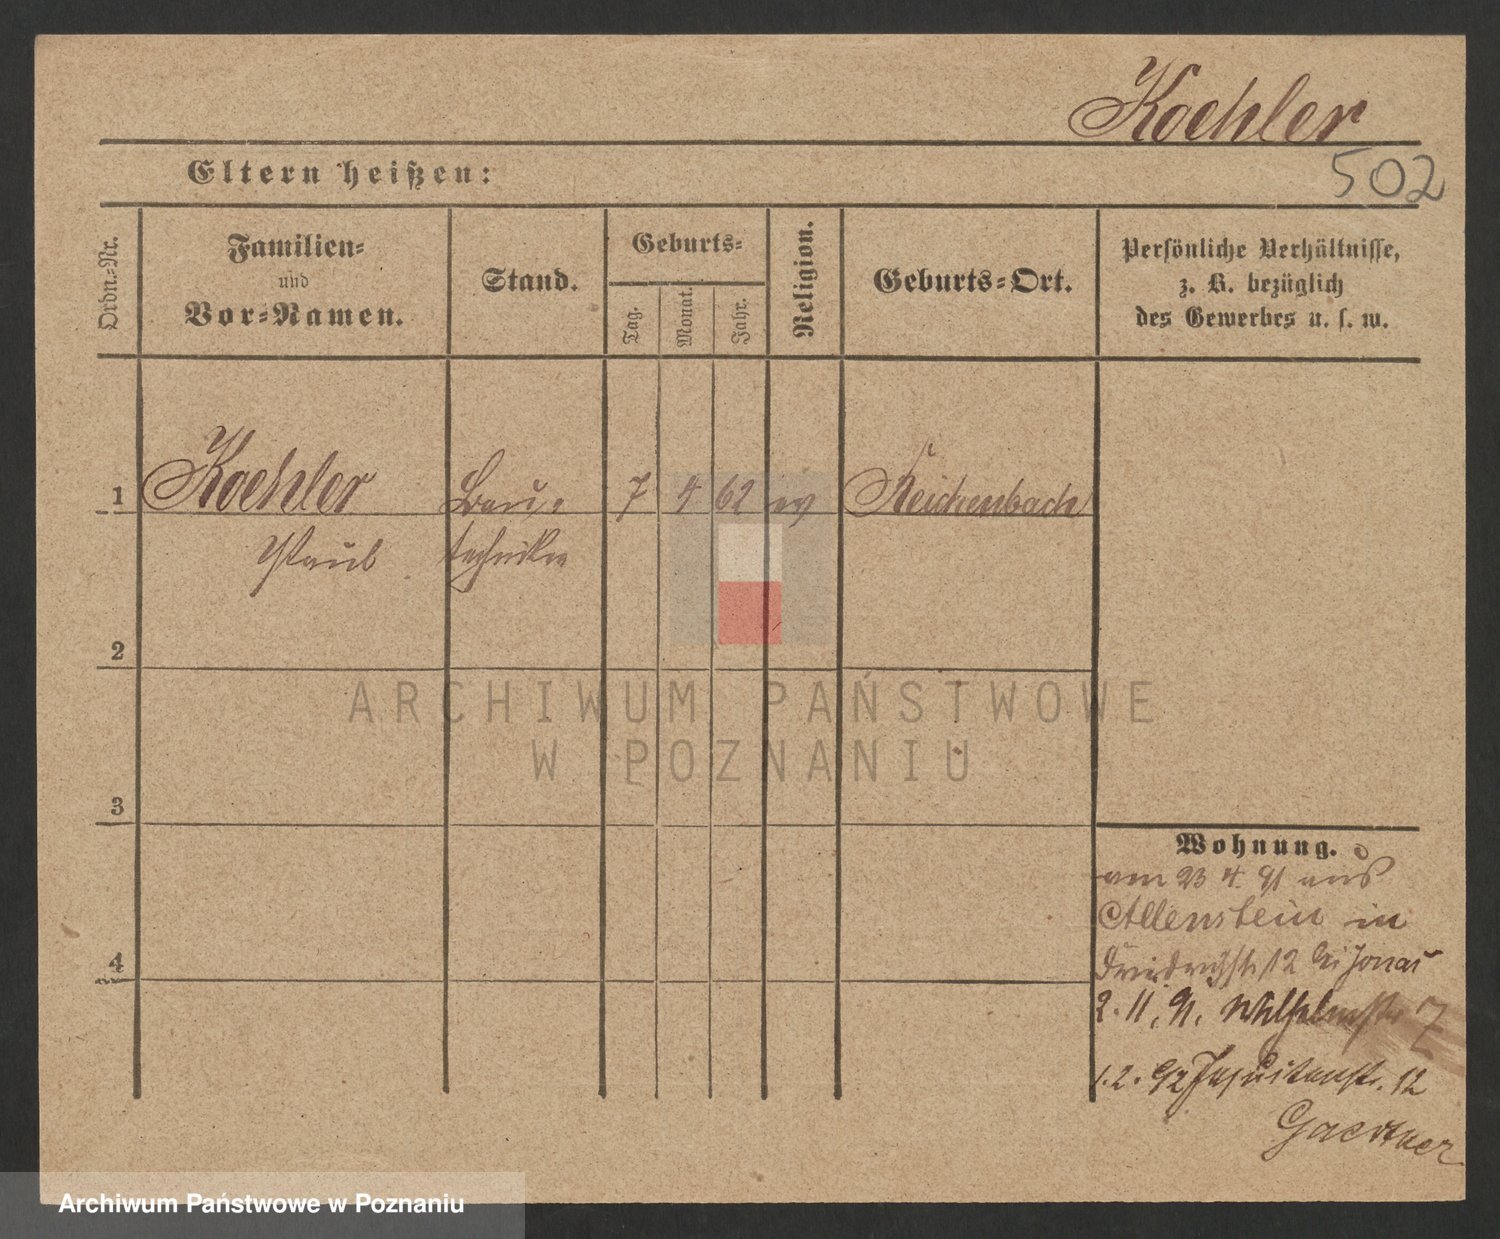 Koehler
Eltern heißen:
502
Ordn.-Nr.
Familien-
und
Vor-Namen.
Stand.
Geburts-
Tag.
Monat.
Jahr.
Religion.
Geburts-Ort.
Persönliche Verhältnisse,
z. B. bezüglich
des Gewerbes u. s. w.
1
Koehler
Bau-
7
4
62
ev
Reichenbach
Paul
techniker
2
3
4
Wohnung.
am 23 4. 91 aus
Allenstein in
Friedrichstr 12 bei Jonas
2. 11. 91. Wilhelmstr 7
1. 2. 92 Jesuitenstr. 12
Gaertner
ARCHIWUM PAŃSTWOWE
W POZNANIU
Archiwum Państwowe w Poznaniu